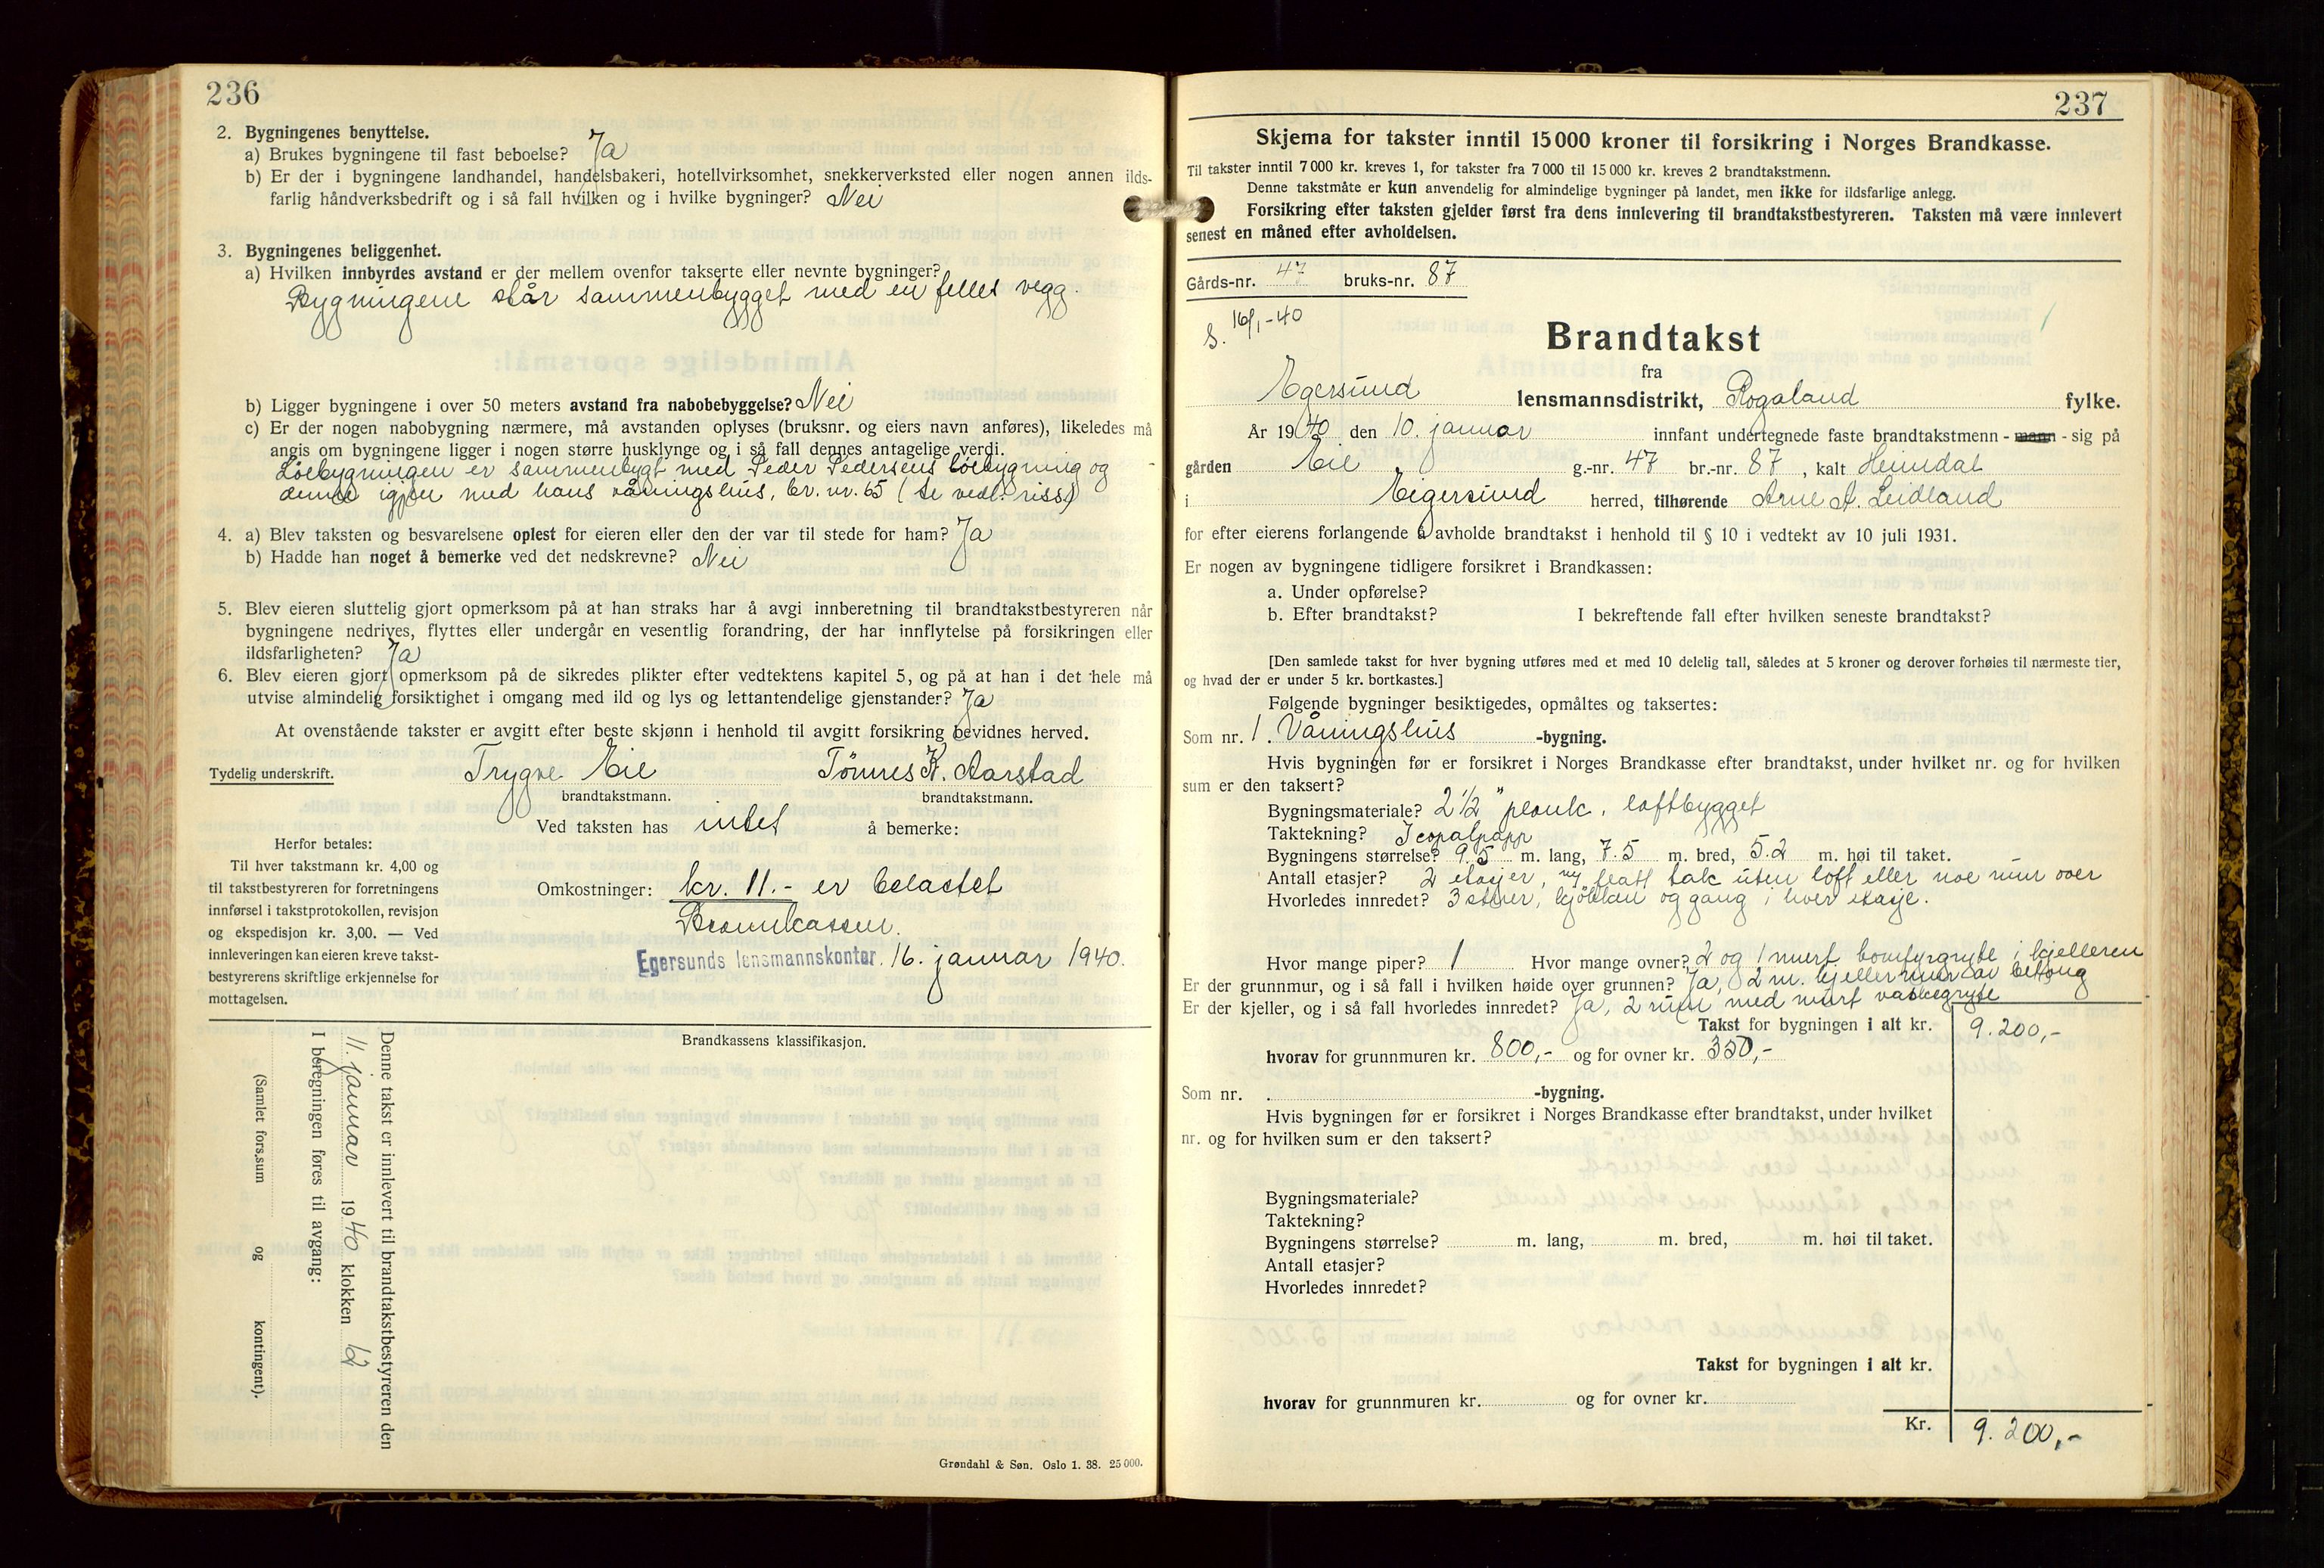 236
2. Bygningenes benyttelse.
a) Brukes bygningene til fast beboelse? Ja
b) Er der i bygningene landhandel, handelsbakeri, hotellvirksomhet, snekkerverksted eller nogen annen ilds-
farlig håndverksbedrift og i så fall hvilken og i hvilke bygninger? Nei
3. Bygningenes beliggenhet.
a) Hvilken innbyrdes avstand er der mellem ovenfor takserte eller nevnte bygninger?
Bygningene står sammenbygget med en felles vegg.
b) Ligger bygningene i over 50 meters avstand fra nabobebyggelse? Nei
c) Er der nogen nabobygning nærmere, må avstanden oplyses (bruksnr. og eiers navn anføres), likeledes må
angis om bygningene ligger i nogen større husklynge og i så fall dennes antagelige verdi.
Löebygningen er sammenbygt med Peder Pedersens löebygning og
denne igjen med hans våningshus, br. nr. 65 (se vedl. riss)
4. a) Blev taksten og besvarelsene oplest for eieren eller den der var til stede for ham? Ja
b) Hadde han noget å bemerke ved det nedskrevne? Nei
5. Blev eieren sluttelig gjort opmerksom på at han straks har å avgi innberetning til brandtakstbestyreren når
bygningene nedrives, flyttes eller undergår en vesentlig forandring, der har innflytelse på forsikringen eller
ildsfarligheten? Ja
6. Blev eieren gjort opmerksom på de sikredes plikter efter vedtektens kapitel 5, og på at han i det hele må
utvise almindelig forsiktighet i omgang med ild og lys og lettantendelige gjenstander? Ja
At ovenstående takster er avgitt efter beste skjønn i henhold til avgitt forsikring bevidnes herved.
Tydelig underskrift. Trygve Eie Tönnes K. Aarstad
brandtakstmann. brandtakstmann.
Ved taksten has intet å bemerke:
Herfor betales:
Til hver takstmann kr. 4,00 og
til takstbestyreren for forretningens
innførsel i takstprotokollen, revisjon
og ekspedisjon kr. 3,00. — Ved
innleveringen kan eieren kreve takst-
bestyrerens skriftlige erkjennelse for
mottagelsen.
Omkostninger: kr. 11.- er belastet
Brannkassen.
Egersunds lensmannskontor. 16. januar 1940.
Brandkassens klassifikasjon.
Denne takst er innlevert til brandtakstbestyreren den
11. januar 1940 klokken 12
I beregningen føres til avgang:
(Samlet fors.sum og kontingent).
Grøndahl & Søn. Oslo 1. 38. 25 000.
237
Skjema for takster inntil 15 000 kroner til forsikring i Norges Brandkasse.
Til takster inntil 7 000 kr. kreves 1, for takster fra 7 000 til 15 000 kr. kreves 2 brandtakstmenn.
Denne takstmåte er kun anvendelig for almindelige bygninger på landet, men ikke for ildsfarlige anlegg.
Forsikring efter taksten gjelder først fra dens innlevering til brandtakstbestyreren. Taksten må være innlevert
senest en måned efter avholdelsen.
Gårds-nr. 47 bruks-nr. 87
S. 16/1-40
Brandtakst
fra
Egersund lensmannsdistrikt, Rogaland fylke.
År 1940 den 10. januar innfant undertegnede faste brandtakstmenn - mann - sig på
gården Eie g.-nr. 47 br.-nr. 87, kalt Heimdal
i Eigersund herred, tilhørende Arne A. Leidland
for efter eierens forlangende å avholde brandtakst i henhold til § 10 i vedtekt av 10 juli 1931.
Er nogen av bygningene tidligere forsikret i Brandkassen:
a. Under opførelse?
b. Efter brandtakst? I bekreftende fall efter hvilken seneste brandtakst?
[Den samlede takst for hver bygning utføres med et med 10 delelig tall, således at 5 kroner og derover forhøies til nærmeste tier,
og hvad der er under 5 kr. bortkastes.]
Følgende bygninger besiktigedes, opmåltes og taksertes:
Som nr. 1. Våningshus -bygning.
Hvis bygningen før er forsikret i Norges Brandkasse efter brandtakst, under hvilket nr. og for hvilken
sum er den taksert?
Bygningsmateriale? 2½" plank, loftbygget
Taktekning? Icopalpapp
Bygningens størrelse? 9.5 m. lang, 7.5 m. bred, 5.2 m. høi til taket.
Antall etasjer? 2 etasjer, flatt tak uten loft eller noe rum over
Hvorledes innredet? 3 stuer, kjökken og gang i hver etasje.
Hvor mange piper? 1 Hvor mange ovner? 2 og 1 murt komfyrgryte i kjelleren
Er der grunnmur, og i så fall i hvilken høide over grunnen? Ja, 2 m. kjellermur av betong
Er der kjeller, og i så fall hvorledes innredet? Ja, 2 rum med murt vaskegryte
Takst for bygningen i alt kr. 9.200,-
hvorav for grunnmuren kr. 800,- og for ovner kr. 350,-
Som nr. . -bygning.
Hvis bygningen før er forsikret i Norges Brandkasse efter brandtakst, under hvilket
nr. og for hvilken sum er den taksert?
Bygningsmateriale?
Taktekning?
Bygningens størrelse? m. lang, m. bred, m. høi til taket.
Antall etasjer?
Hvorledes innredet?
Takst for bygningen i alt kr.
hvorav for grunnmuren kr. og for ovner kr.
Kr. 9.200,-